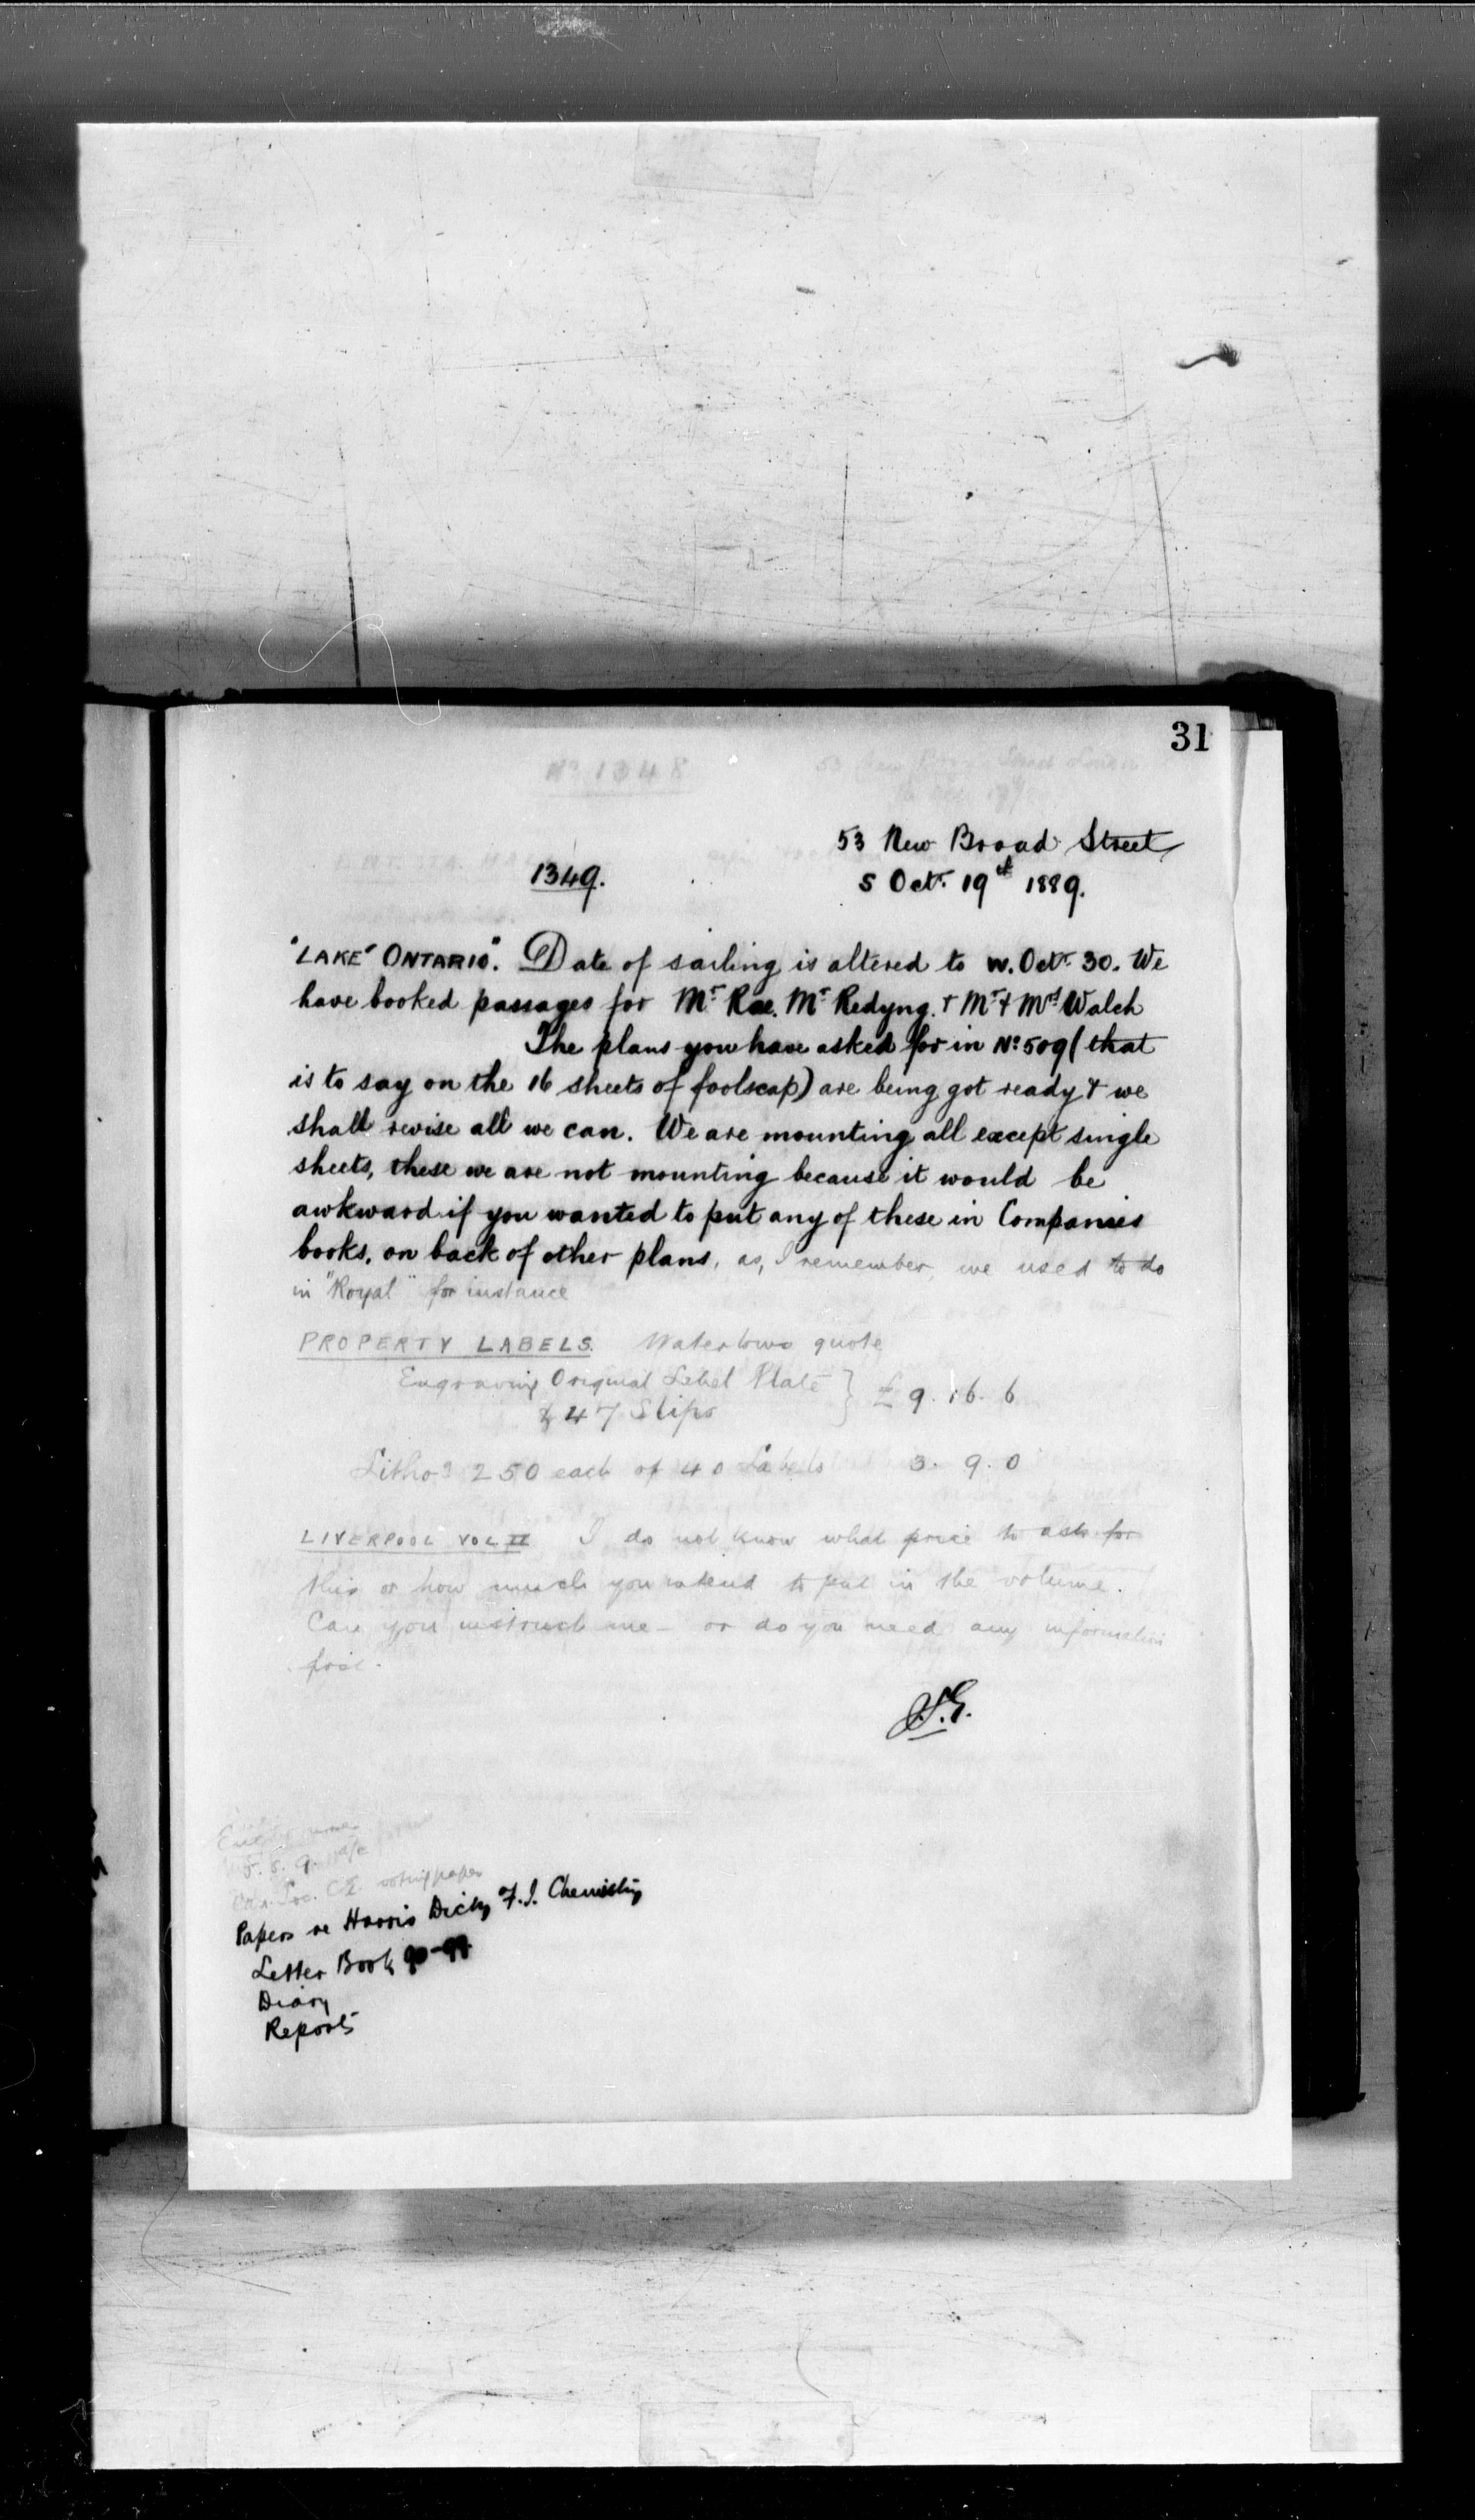 31
Nº 1348
53 New Broad Street
1349.
S Octr. 19th 1889.
"LAKE ONTARIO". Date of sailing is altered to W. Octr. 30. We
have booked passages for Mr Rae. Mr Redyng. & Mr & Mrs Walch
The plans you have asked for in Nº 509 (that
is to say on the 16 sheets of foolscap) are being got ready & we
shall revise all we can. We are mounting all except single
sheets, these we are not mounting because it would be
awkward if you wanted to put any of these in Companies
books, on back of other plans, as, I remember, we used to do
in "Royal" for instance
PROPERTY LABELS. Waterlows quote
Engraving Original Label Plate
& 47 Slips } £ 9. 16. 6
Lithog 250 each of 40 Labels 3. 9. 0
LIVERPOOL VOL II I do not know what price to ask for
this or how much you intend to put in the volume.
Can you instruct me - or do you need any information
first.
S.G.
voting paper
Papers re Harris Dicky F.I. Chemistry
Letter Book 90-99
Diary
Reports